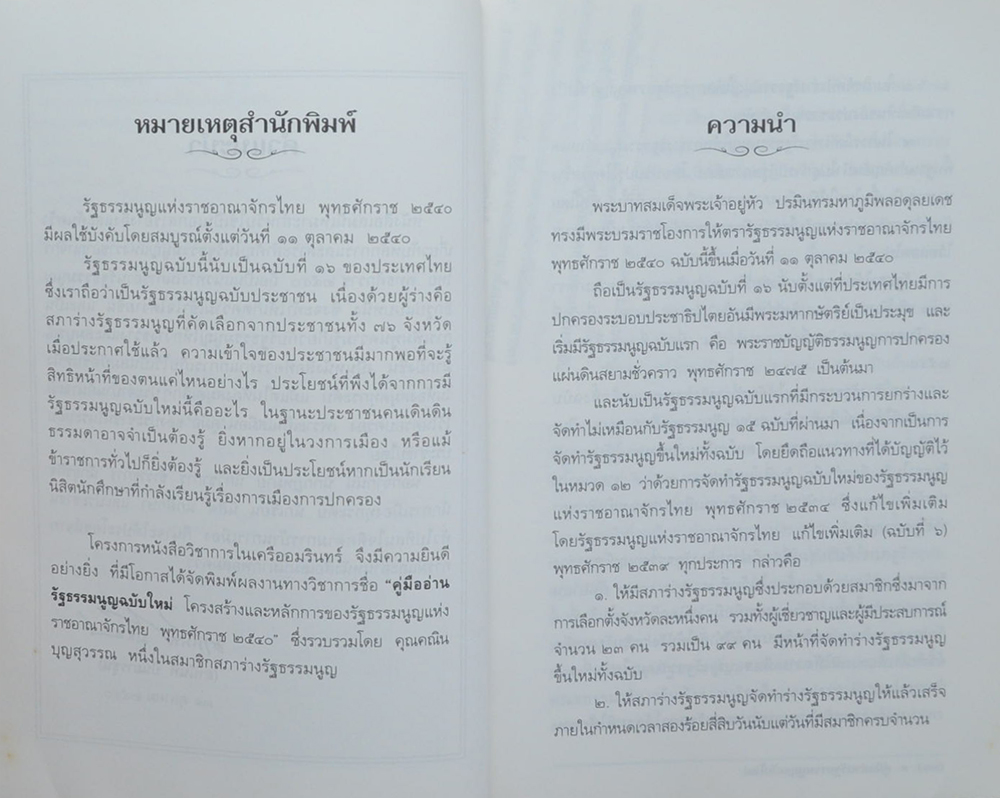 หมายเหตุสำนักพิมพ์
รัฐธรรมนูญแห่งราชอาณาจักรไทย พุทธศักราช ๒๕๔๐
มีผลใช้บังคับโดยสมบูรณ์ตั้งแต่วันที่ ๑๑ ตุลาคม ๒๕๔๐
รัฐธรรมนูญฉบับนี้นับเป็นฉบับที่ ๑๖ ของประเทศไทย
ซึ่งเราถือว่าเป็นรัฐธรรมนูญฉบับประชาชน เนื่องด้วยผู้ร่างคือ
สภาร่างรัฐธรรมนูญที่คัดเลือกจากประชาชนทั้ง ๗๖ จังหวัด
เมื่อประกาศใช้แล้ว ความเข้าใจของประชาชนมีมากพอที่จะรู้
สิทธิหน้าที่ของตนแค่ไหนอย่างไร ประโยชน์ที่พึงได้จากการมี
รัฐธรรมนูญฉบับใหม่นี้คืออะไร ในฐานะประชาชนคนเดินดิน
ธรรมดาอาจจำเป็นต้องรู้ ยิ่งหากอยู่ในวงการเมือง หรือแม้
ข้าราชการทั่วไปก็ยิ่งต้องรู้ และยิ่งเป็นประโยชน์หากเป็นนักเรียน
นิสิตนักศึกษาที่กำลังเรียนรู้เรื่องการเมืองการปกครอง
โครงการหนังสือวิชาการในเครืออมรินทร์ จึงมีความยินดี
อย่างยิ่ง ที่มีโอกาสได้จัดพิมพ์ผลงานทางวิชาการชื่อ "คู่มืออ่าน
รัฐธรรมนูญฉบับใหม่ โครงสร้างและหลักการของรัฐธรรมนูญแห่ง
ราชอาณาจักรไทย พุทธศักราช ๒๕๔๐" ซึ่งรวบรวมโดย คุณคณิน
บุญสุวรรณ หนึ่งในสมาชิกสภาร่างรัฐธรรมนูญ
ความนำ
พระบาทสมเด็จพระเจ้าอยู่หัว ปรมินทรมหาภูมิพลอดุลยเดช
ทรงมีพระบรมราชโองการให้ตรารัฐธรรมนูญแห่งราชอาณาจักรไทย
พุทธศักราช ๒๕๔๐ ฉบับนี้ขึ้นเมื่อวันที่ ๑๑ ตุลาคม ๒๕๔๐
ถือเป็นรัฐธรรมนูญฉบับที่ ๑๖ นับตั้งแต่ที่ประเทศไทยมีการ
ปกครองระบอบประชาธิปไตยอันมีพระมหากษัตริย์เป็นประมุข และ
เริ่มมีรัฐธรรมนูญฉบับแรก คือ พระราชบัญญัติธรรมนูญการปกครอง
แผ่นดินสยามชั่วคราว พุทธศักราช ๒๔๗๕ เป็นต้นมา
และนับเป็นรัฐธรรมนูญฉบับแรกที่มีกระบวนการยกร่างและ
จัดทำไม่เหมือนกับรัฐธรรมนูญ ๑๕ ฉบับที่ผ่านมา เนื่องจากเป็นการ
จัดทำรัฐธรรมนูญขึ้นใหม่ทั้งฉบับ โดยยึดถือแนวทางที่ได้บัญญัติไว้
ในหมวด ๑๒ ว่าด้วยการจัดทำรัฐธรรมนูญฉบับใหม่ของรัฐธรรมนูญ
แห่งราชอาณาจักรไทย พุทธศักราช ๒๕๓๔ ซึ่งแก้ไขเพิ่มเติม
โดยรัฐธรรมนูญแห่งราชอาณาจักรไทย แก้ไขเพิ่มเติม (ฉบับที่ ๖)
พุทธศักราช ๒๕๓๙ ทุกประการ กล่าวคือ
๑. ให้มีสภาร่างรัฐธรรมนูญซึ่งประกอบด้วยสมาชิกซึ่งมาจาก
การเลือกตั้งจังหวัดละหนึ่งคน รวมทั้งผู้เชี่ยวชาญและผู้มีประสบการณ์
จำนวน ๒๓ คน รวมเป็น ๙๙ คน มีหน้าที่จัดทำร่างรัฐธรรมนูญ
ขึ้นใหม่ทั้งฉบับ
๒. ให้สภาร่างรัฐธรรมนูญจัดทำร่างรัฐธรรมนูญให้แล้วเสร็จ
ภายในกำหนดเวลาสองร้อยสี่สิบวันนับแต่วันที่มีสมาชิกครบจำนวน